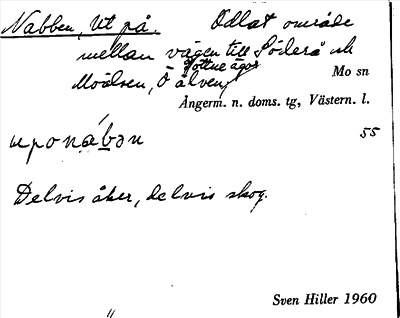 Nabben, Ut på.   Odlat område
mellan vägen till Söderå och
Moälven, Ö älven,
Gottne ägor
Mo sn
Ångerm. n. doms. tg, Västern. l.
uponábən
55
Delvis åker, delvis skog.
Sven Hiller 1960